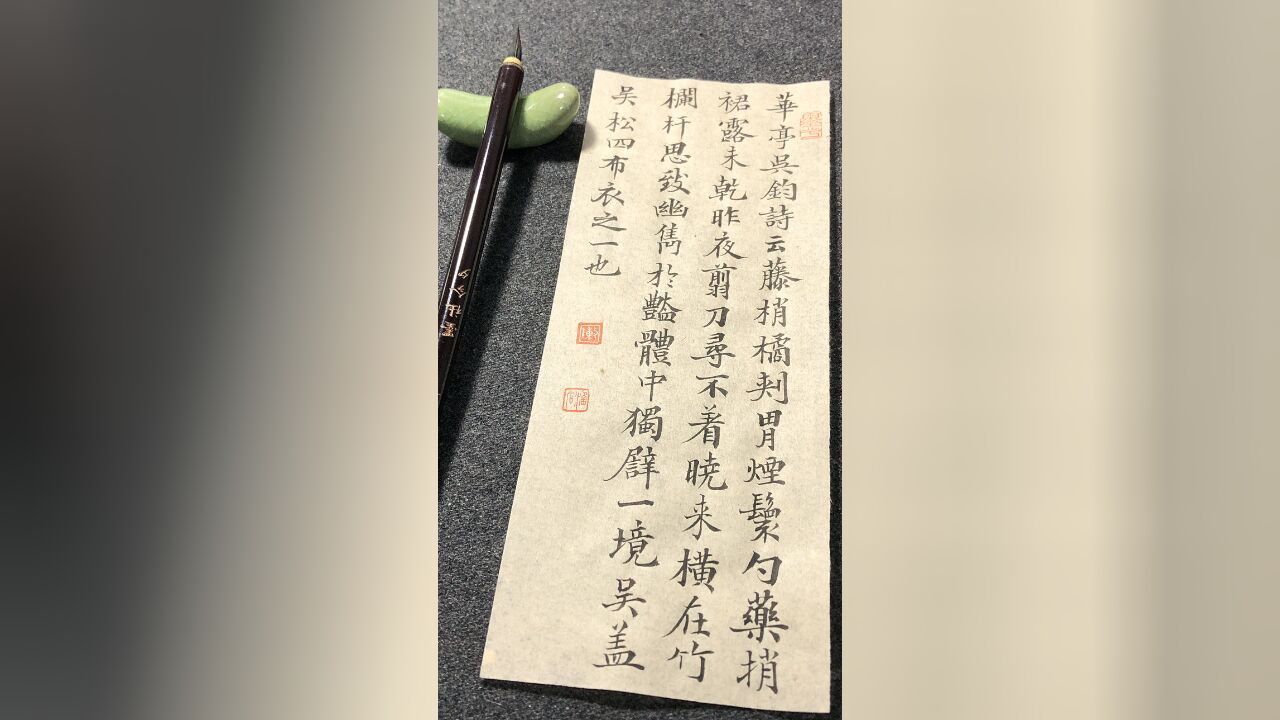 華亭吳鈞詩云藤梢橘刾罥煙鬟勺藥捎
裙露未乾昨夜翦刀尋不着曉来橫在竹
欄杆思致幽雋於豔體中獨辟一境吴盖
吴松四布衣之一也